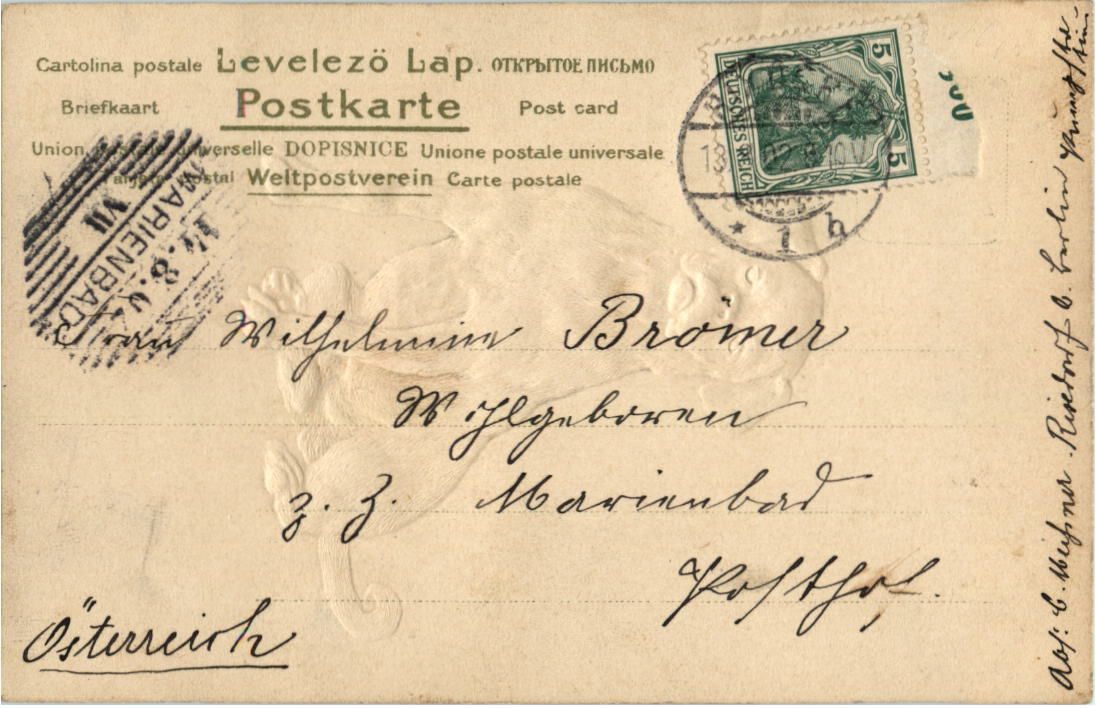 Cartolina postale Levelező Lap. ОТКРЫТОЕ ПИСЬМО
Briefkaart Postkarte Post card
Union postale universelle DOPISNICE Unione postale universale
Weltpostverein Carte postale
5
5
DEUTSCHES REICH
MARIENBAD
14.8.0
VII
* 1 h
Frau Wilhelmine Brömer
Wohlgeboren
z. Z. Marienbad
Posthof.
Österreich
Abs: C. Meissner Rixdorf b. Berlin